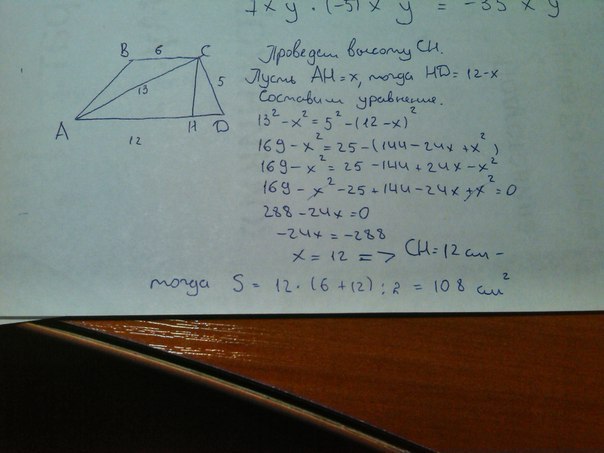 7xy · (-5)xy = -35xy
B 6 C
13
5
A H D
12
Проведем высоту CH.
Пусть AH=x, тогда HD=12-x
Составим уравнение.
13²-x²=5²-(12-x)²
169-x²=25-(144-24x+x²)
169-x²=25-144+24x-x²
169-x²-25+144-24x+x²=0
288-24x=0
-24x=-288
x=12 => CH=12 см-
тогда S = 12·(6+12):2 = 108 см²